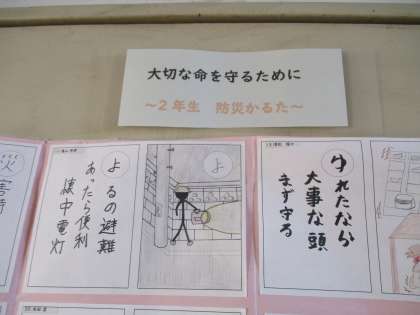 大切な命を守るために
～2年生 防災かるた～
よるの避難
あったら便利
懐中電灯
よ
ゆれたなら
大事な頭
まず守る
災
害時